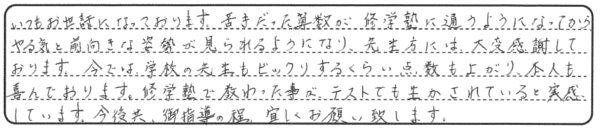 いつもお世話になっております。苦手だった算数が、修学塾に通うようになってから
やる気と前向きな姿勢が見られるようになり、先生方には、大変感謝して
おります。今では、学校の先生もビックリするくらい点数も上がり、本人も
喜んでおります。修学塾で教わった事が、テストでも生かされていると実感
しています。今後共、御指導の程、宜しくお願い致します。